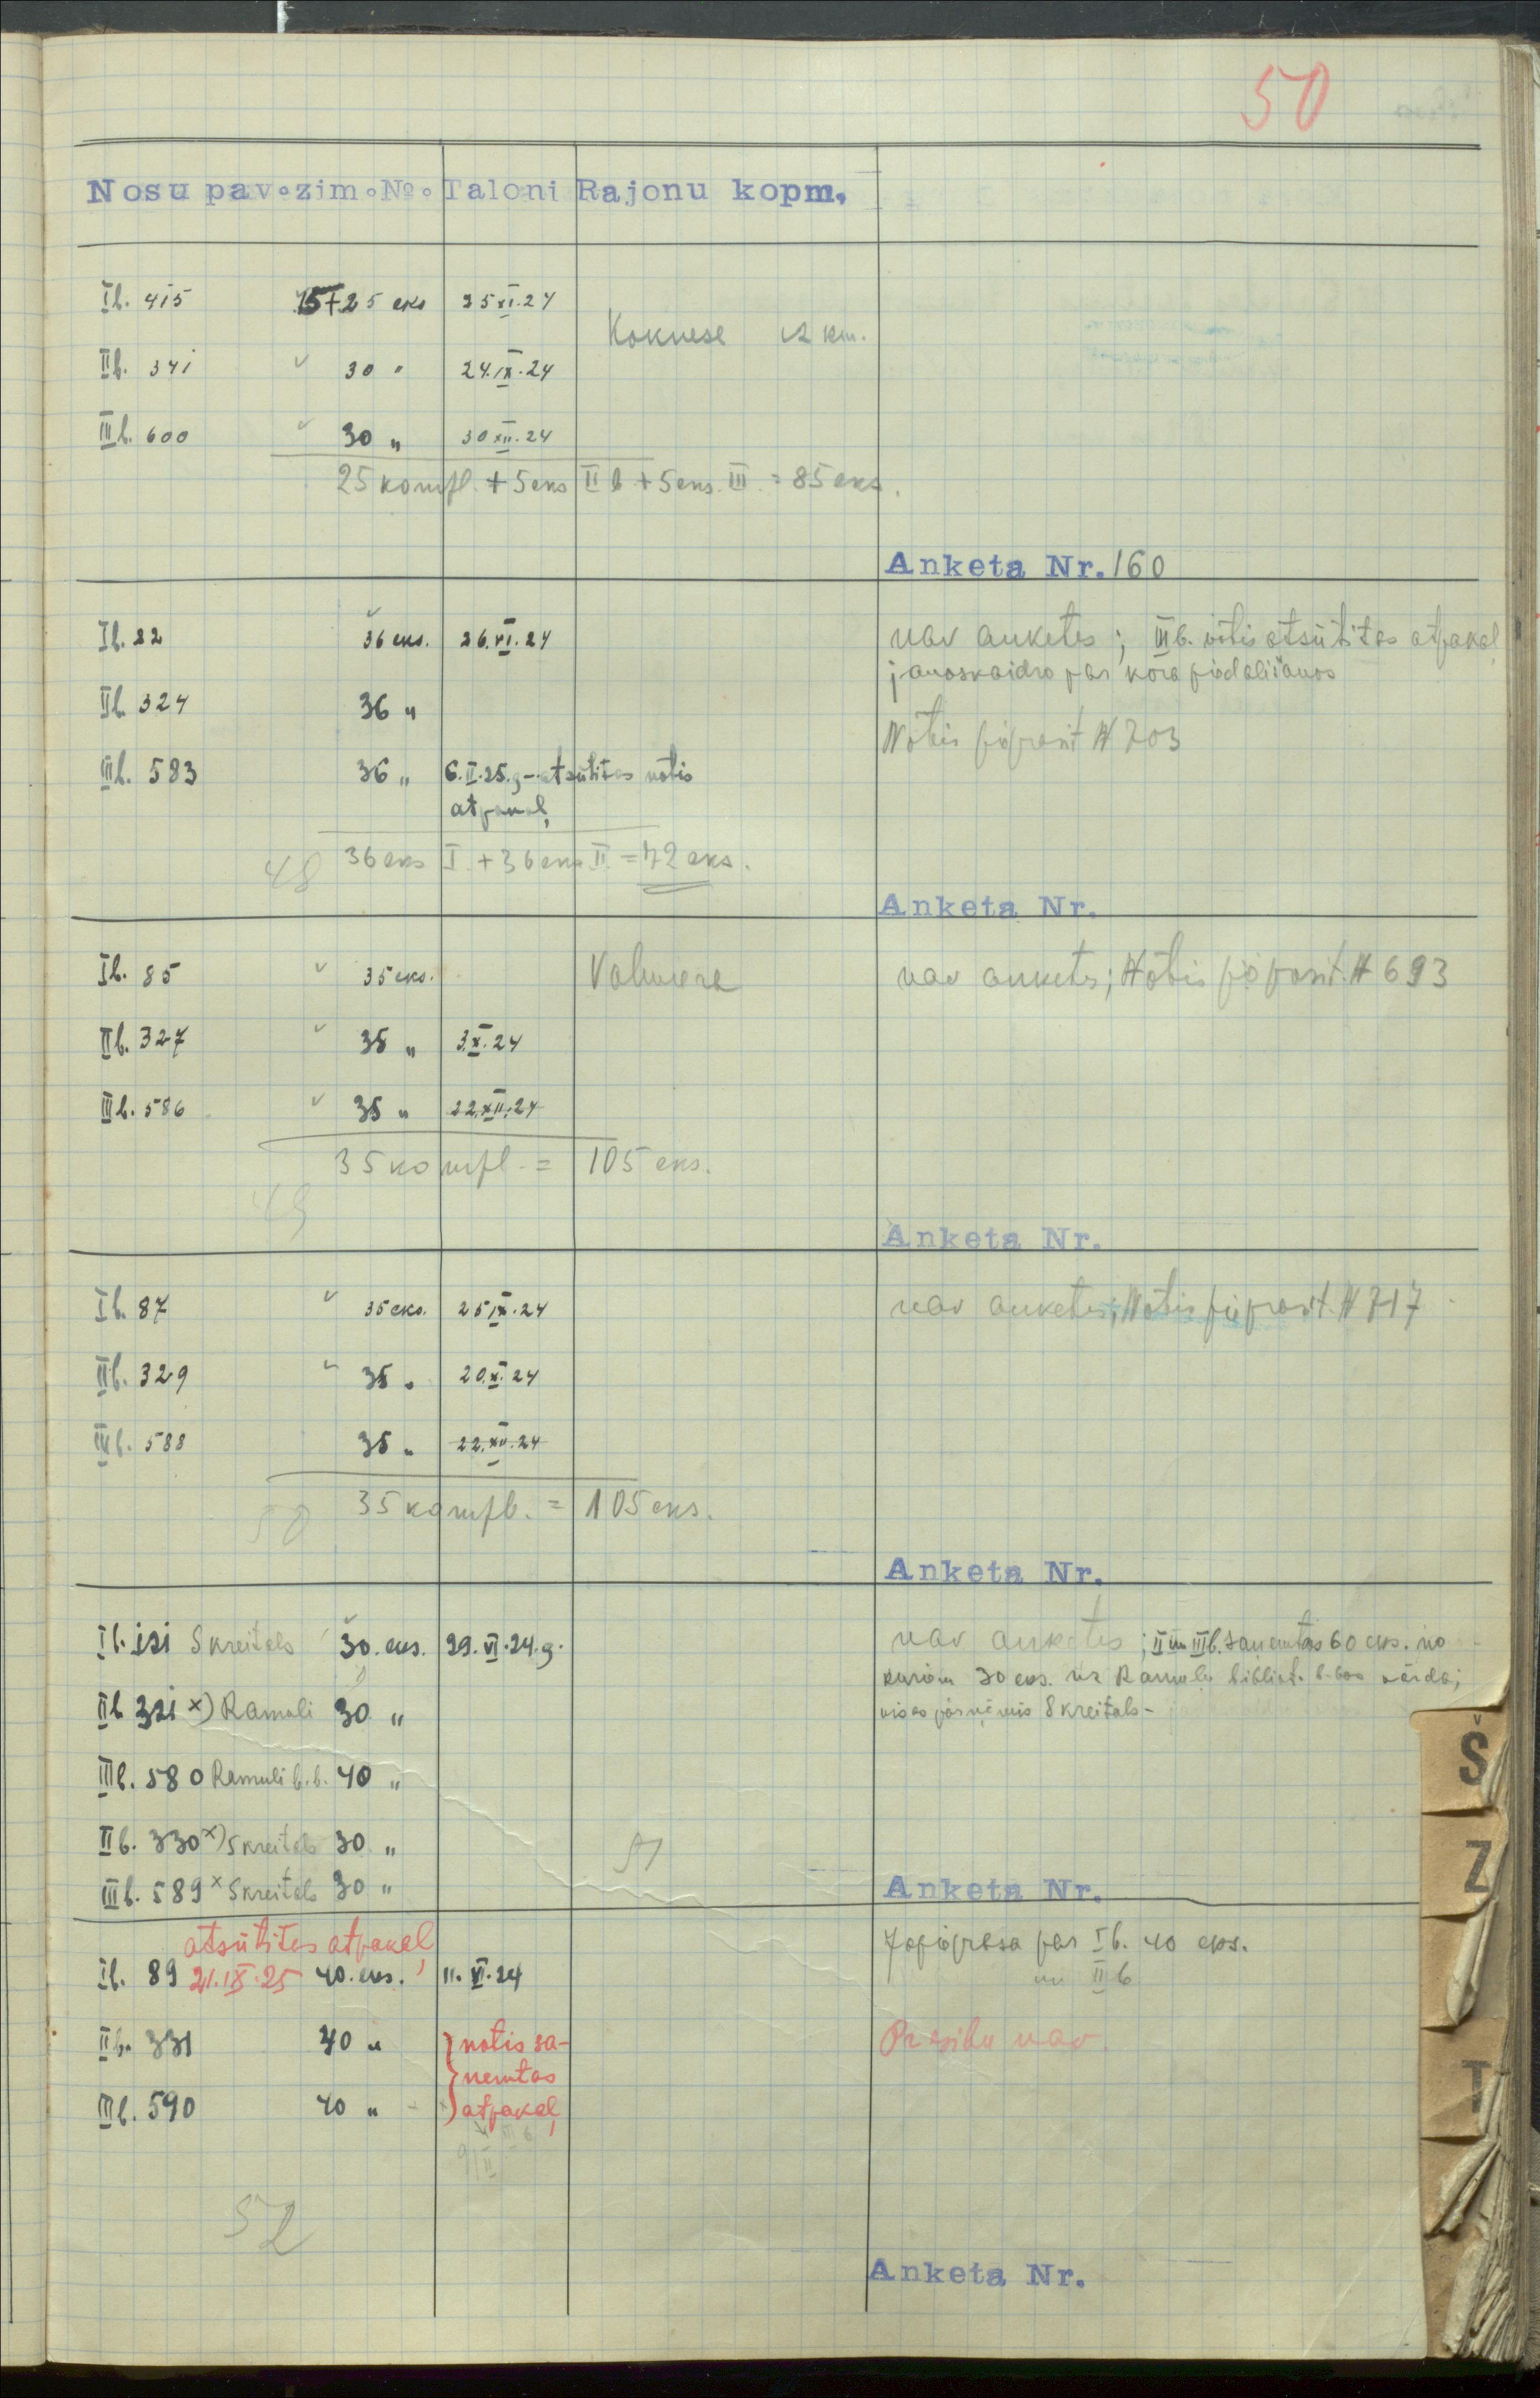 50
Nosu pav. zim. №. Taloni Rajonu kopm.
I b. 415 15+25 eks 25 XI.24
Koknese 12 km.
II b. 341 30 " 24.IX.24
III b. 600 30 " 30 XII.24
25 kompl. + 5 eks II b + 5 eks. III = 85 eks.
Anketa Nr. 160
I b. 82 36 eks. 26.VI.24 nav anketes; III b. nōtis atsūtītas atpakaļ
jānoskaidro par kora piedalīšanos
II b. 324 36 "
Nōtis pieprasīt № 703
III b. 583 36 " 6.I.25.g - atsūtītas nōtis
atpakaļ
48 36 eks I. + 36 eks II. = 72 eks.
Anketa Nr.
I b. 85 35 eks. Valmiera nav anketes; Nōtis pieprasīt. № 693
II b. 327 35 " 3.X.24
III b. 586 35 " 22.XII.24
35 kompl. = 105 eks.
49
Anketa Nr.
I b. 87 35 eks. 25 IX.24 nav anketes; Nōtis pieprasīt. № 717
II b. 329 35 " 20.X.24
III b. 588 35 " 22.XII.24
50 35 kompl. = 105 eks.
Anketa Nr.
I b. 121 Skreitals 30. eks. 29.VI.24.g. nav anketes; II un III b. saņemtas 60 eks. no
kuriām 30 eks. uz Ramuļu bibliot. b-bas vārda;
II b 321 x) Ramuli 30 " visas pārņēmis Skreitals -
III b. 580 Ramuli b.b. 40 "
II b. 330 x) Skreitals 30 "
51
III b. 589 x Skreitals 30 " Anketa Nr.
atsūtītas atpakaļ
Jāpieprasa par I b. 40 eks.
I b. 89 21.IX.25 40. eks. 11.VI.24 un II b
II b. 331 40 " notis sa-
Prasību nav.
ņemtas
III b. 590 40 " atpakaļ
III b
9/II
52
Anketa Nr.
Š
Z
T